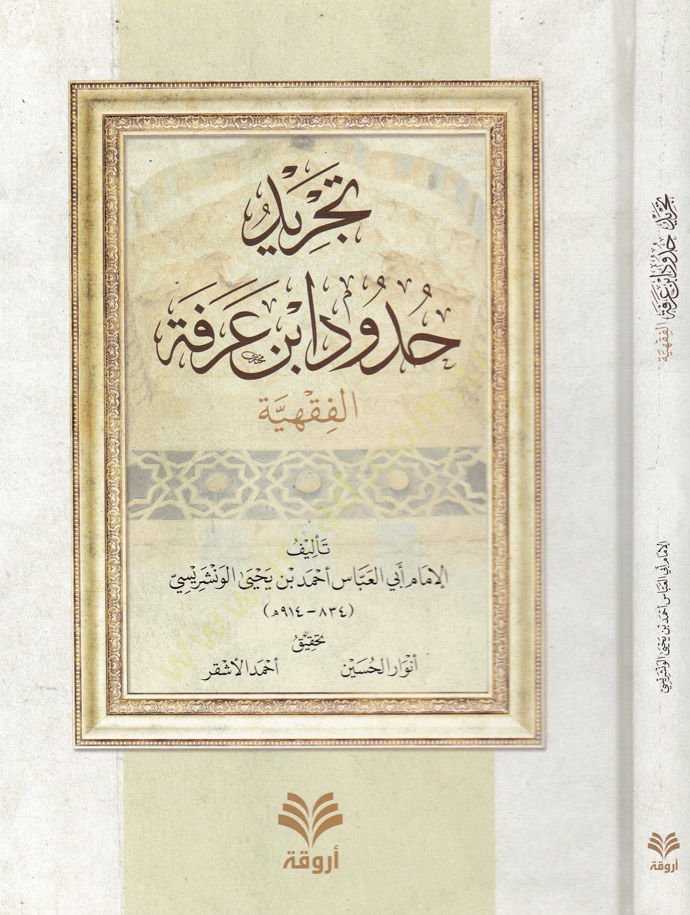 تجريد
حُدُود ابن عَرَفَة
الفِقْهِيَّة
تَأليفُ
الإمَام أبي العَبَّاس أحْمَد بْن يَحْيَى الوَنْشَرِيسِيّ
(٨٣٤ - ٩١٤هـ)
تحقِيقُ
أنْوَار الحُسَيْن أحْمَد الأشْقَر
أروقة
تجريد حُدُود ابن عَرَفَة الفِقْهِيَّة
الإمَام أبي العَبَّاس أحْمَد بْن يَحْيَى الوَنْشَرِيسِيّ
أروقة